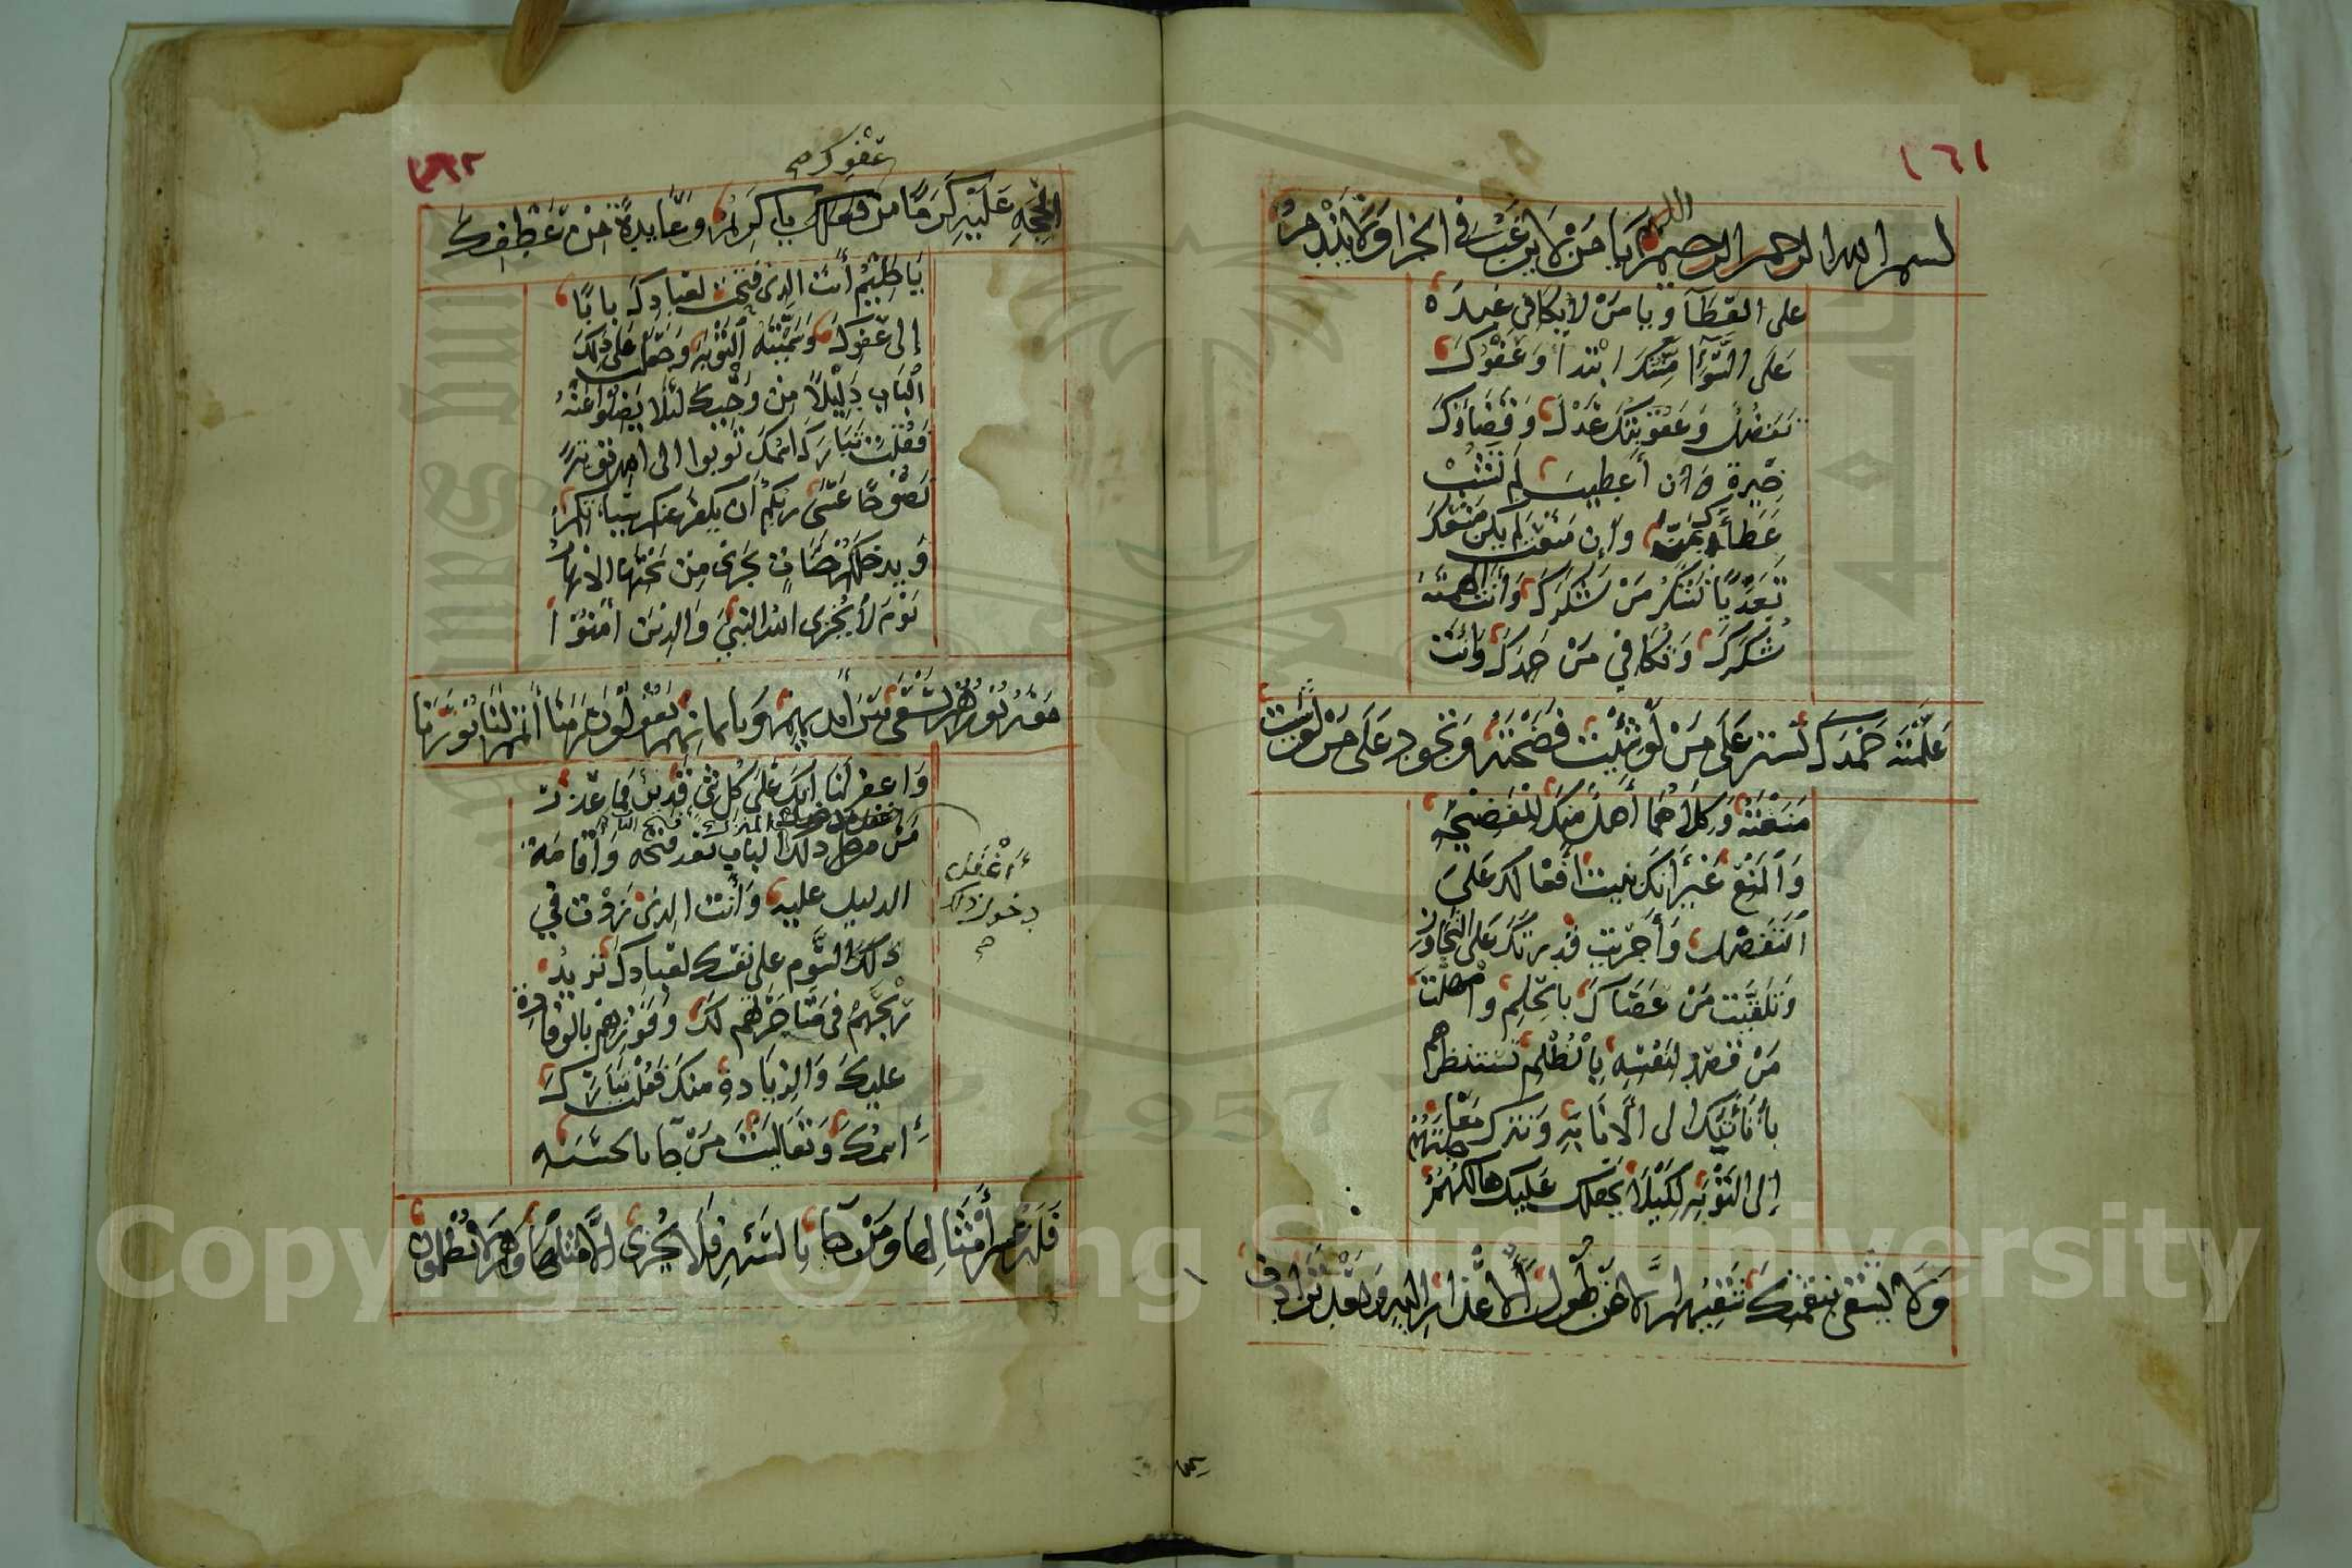 ١٦١
اللهم
بسم الله الرحمن الرحيم يا من لا يرغب في الجزا ولا يندم
على العطآ ويا من لا يكافي عبده
على السوآ منتك ابتدا وعفوك
تفضل وعقوبتك عدل وقضاؤك
خيرة وان أعطيت لم تشب
عطاءك بمن وإن منعت لم يكن منعك
تعديا تشكر من شكرك وأنت الهمته
شكرك وتكافي من حمدك وأنت
علمته حمدك تستر على من لو شئيت فضحته وتجود على من لو شيت
منعته وكلاهما أهل منك للفضيحه
والمنع غير أنك بنيت أفعالك على
التفضل وأجريت قدرتك على التجاوز
وتلقيت من عصاك بالحلم وأمهلت
من قصد لنفسه بالظلم تستنظرهم
بأناتيك الى الانابة وتترك معاجلتهم
إلى التوبه لكيلا يجعل عليك هالكهم
ولا يشقى بنقمتك شقيهم إلا عن طول الاعذار اليه وبعد ترادف
١٦٢
عفوك م
الحجه عليه كرما من فعلك يا كريم وعايدة من عطفك
يا حليم أنت الذي فتحت لعبادك بابا
إلى عفوك وسميته التوبه وجعلت على ذلك
الباب دليلا من وحيك لئلا يضلوا عنه
فقلت تبارك اسمك توبوا الى الله توبة
نصوحا عسى ربكم أن يكفر عنكم سيئاتكم
ويدخلكم جنات تجري من تحتها الانهار
يوم لا يخزى الله النبي والذين امنوا
معه نورهم يسعى بين أيديهم وبأيمانهم يقولون ربنا أتمم لنا نورنا
واغفر لنا انك على كل شي قدير فما عذر
من دلك الباب بعد فتحه وأقامة
أغفل
دخول ذلك
م
الدليل عليه وأنت الذي زدت في
ذلك السوم على نفسك لعبادك تريد
ربحهم في متاجرتهم لك وفوزهم بالوفادة
عليك والزيادة منك فقلت تبارك
اسمك وتعاليت من جا بالحسنه
فله عشر أمثالها ومن جآ بالسيئه فلا يجزى إلا مثلها وهم لا يظلمون
Copyright © King Saud University
1957